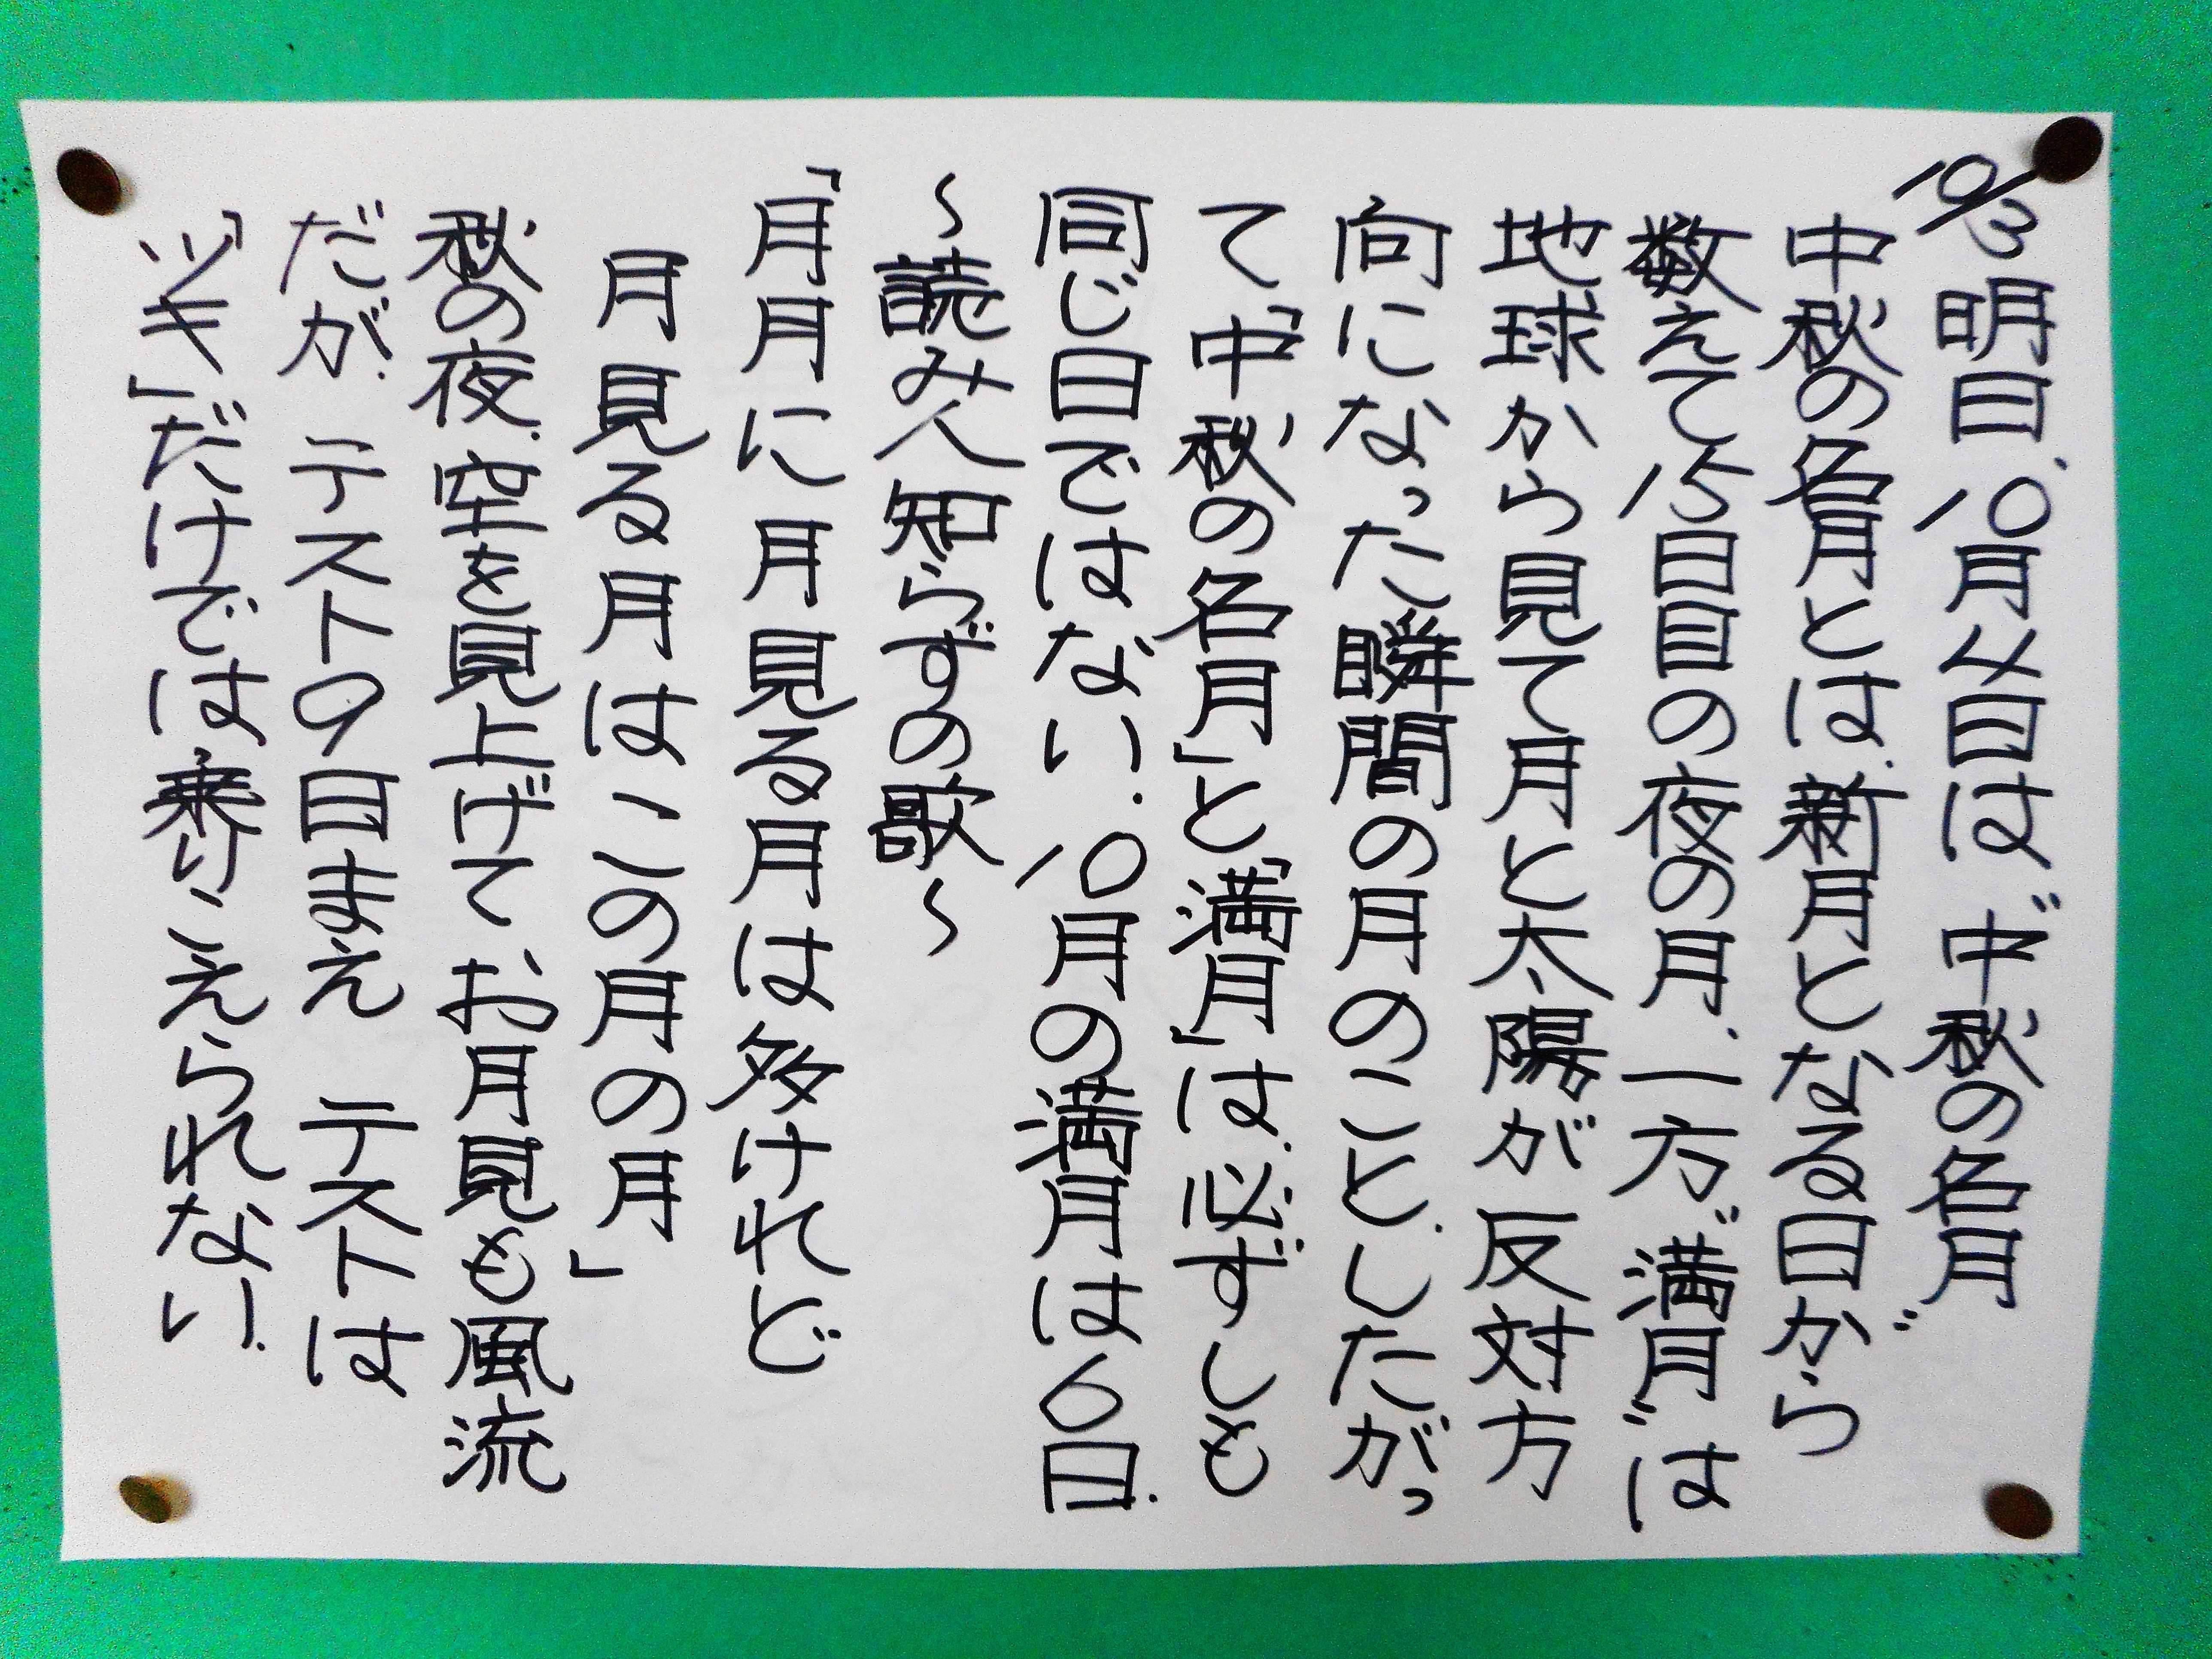 10/3 明日、10月4日は〝中秋の名月〟
中秋の名月とは、新月となる日から
数えて15日目の夜の月、一方、〝満月〟は
地球から見て月と太陽が反対方
向になった瞬間の月のこと、したがっ
て、「中秋の名月」と「満月」は、必ずしも
同じ日ではない、10月の満月は6日、
～読み人知らずの歌～
「月月に月見る月は多けれど
月見る月はこの月の月」
秋の夜、空を見上げてお月見も風流
だが、テスト9日まえ テストは
「ツキ」だけでは乗りこえられない、